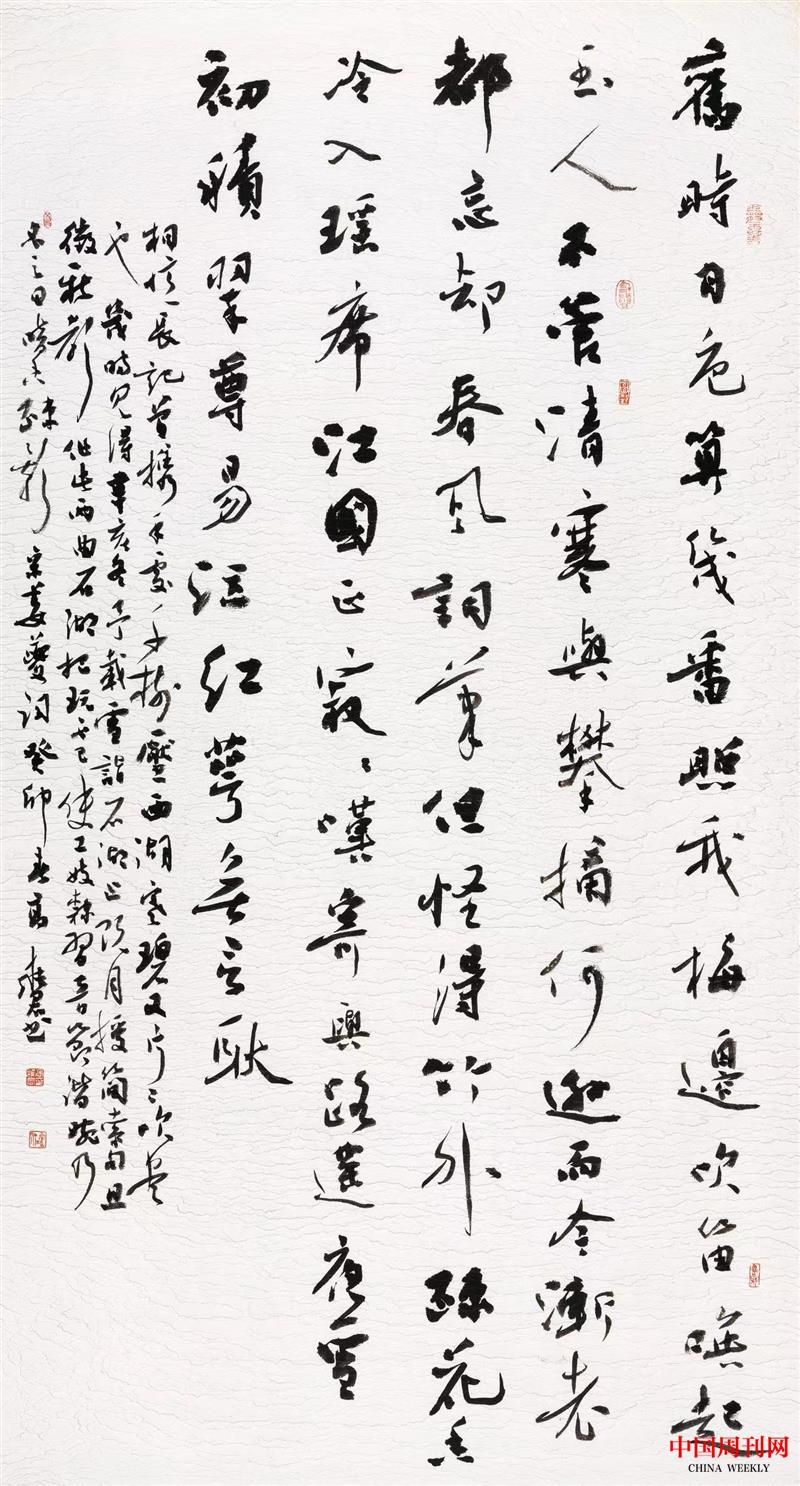 舊時月色算幾番照我梅邊吹笛喚起
玉人不管清寒與攀摘何遜而今漸老
都忘却春風詞筆但怪得竹外疎花香
冷入瑶席江國正寂〻嘆寄與路遥夜雪
初積翠尊易泣紅萼無言耿
相憶長記曾攜手處千樹壓西湖寒碧又片〻吹盡
也幾時見得辛亥冬予載雪詣石湖止既月授簡索句且
徵新聲作此兩曲石湖把玩不已使工妓隸習音節諧婉乃
名之曰暗香疎影宋姜夔詞癸卯春高書
中国周刊网
CHINA WEEKLY